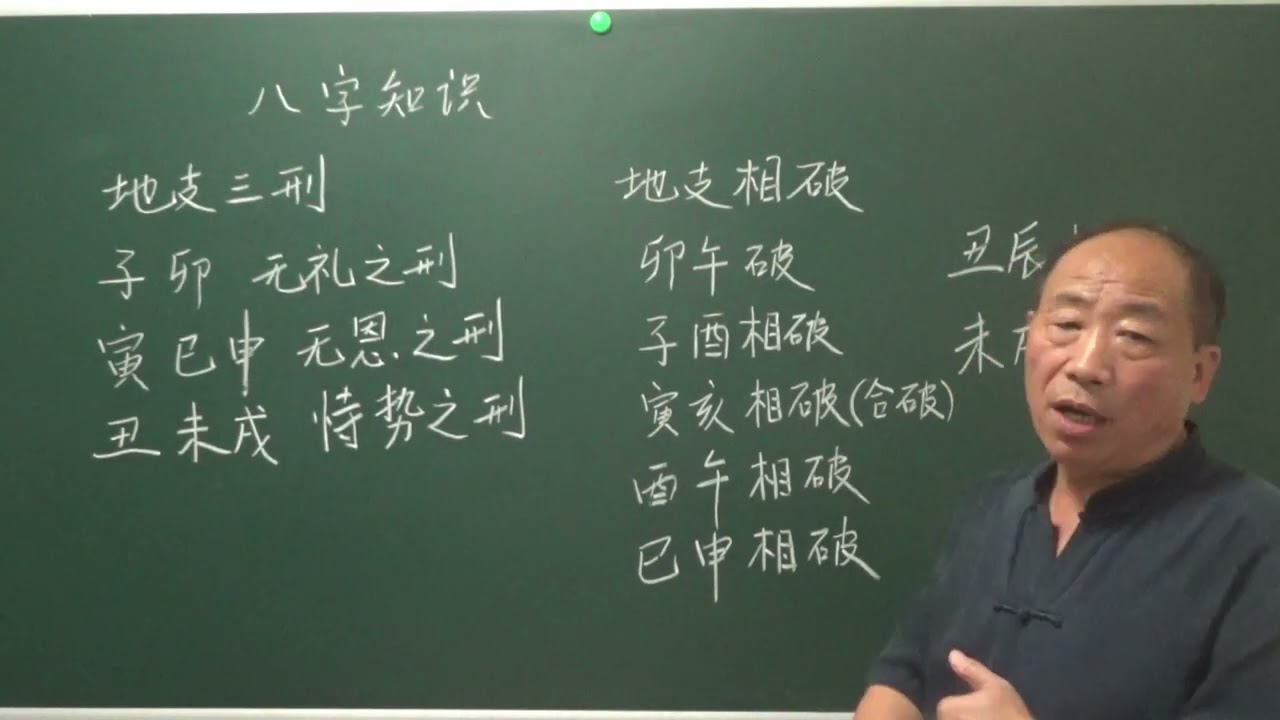 八字知识
地支三刑
子卯 无礼之刑
寅巳申 无恩之刑
丑未戌 恃势之刑
地支相破
卯午破
子酉相破
寅亥相破(合破)
酉午相破
巳申相破
丑辰
未